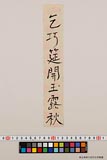 乞巧筵開玉露秋